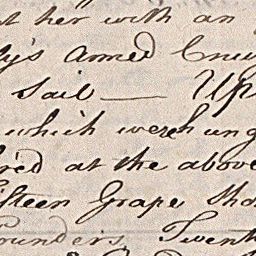 her with an
y's Armed Crui
Sail — Up
which were hung
red at the above
ifteen Grape Sho
ounders, Twent